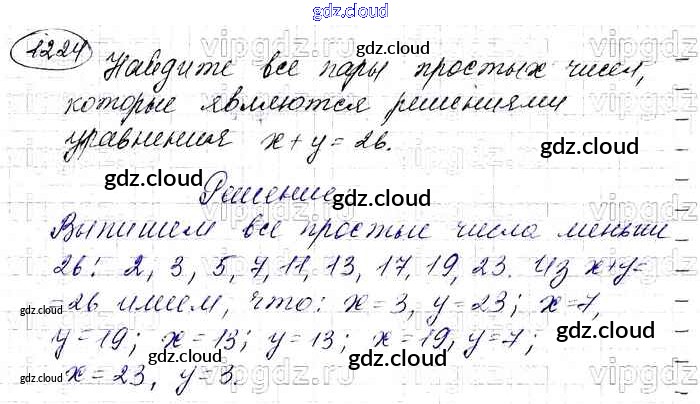 gdz.cloud
1224 Найдите все пары простых чисел,
которые являются решениями
уравнения x + y = 26.
Решение.
Выпишем все простые числа меньши
26: 2, 3, 5, 7, 11, 13, 17, 19, 23. Из x+y=
=26 имеем, что: x=3, y=23; x=7,
y=19; x=13; y=13; x=19, y=7;
x=23, y=3.
gdz.cloud
gdz.cloud
gdz.cloud
gdz.cloud
gdz.cloud
gdz.cloud
gdz.cloud
gdz.cloud
gdz.cloud
gdz.cloud
gdz.cloud
gdz.cloud
vipgdz
vipgdz
vipgdz